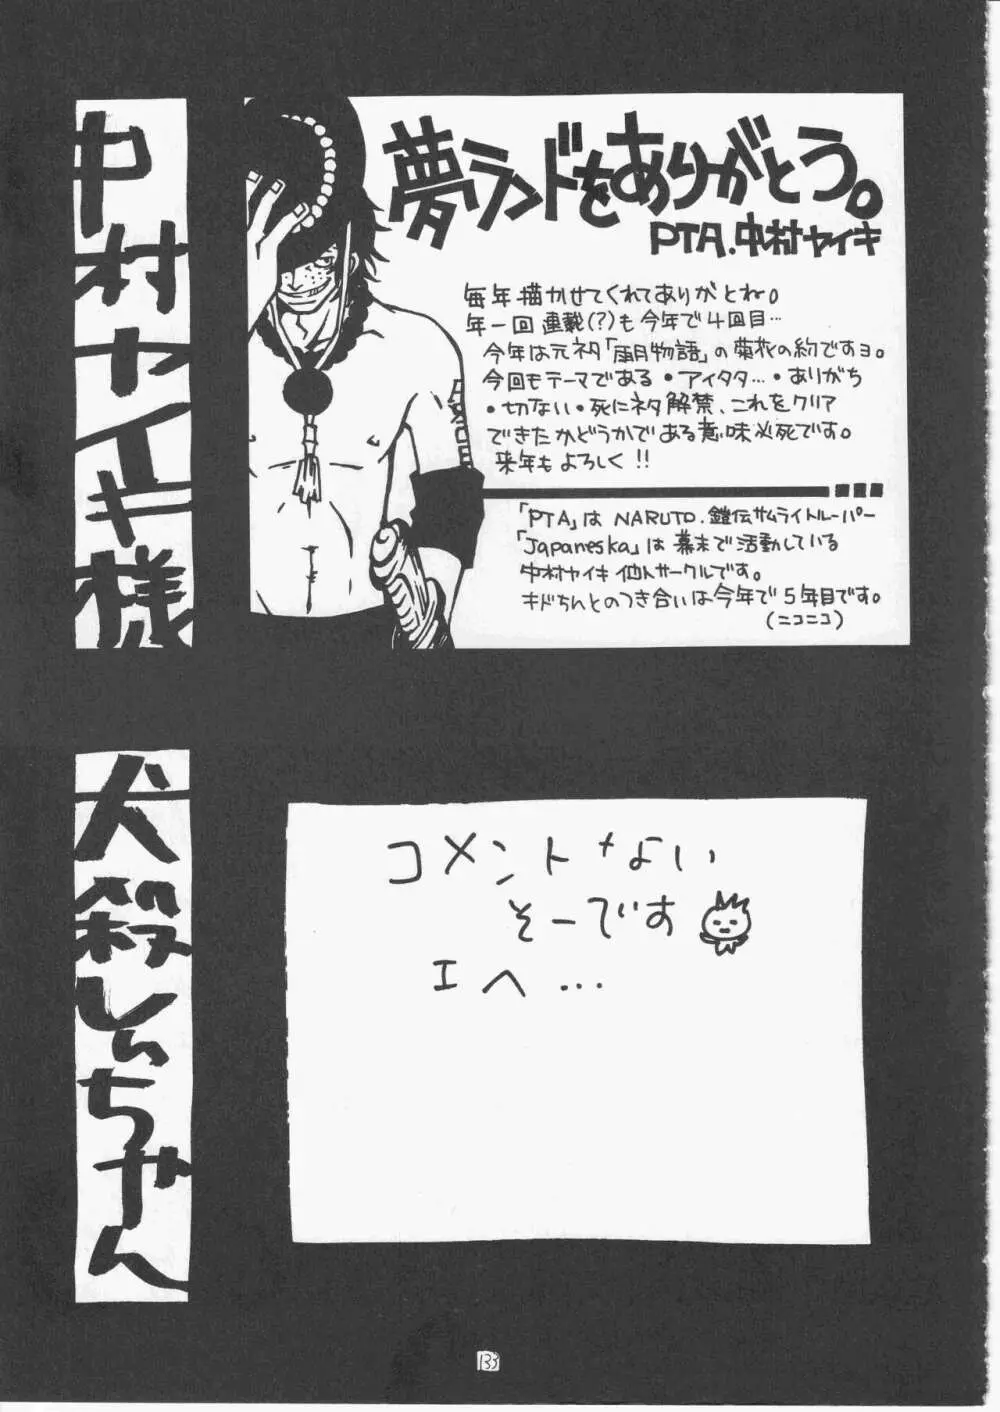 中村ヤイキ様
夢ランドをありがとう。
PTA.中村ヤイキ
毎年描かせてくれてありがとね。
年一回連載(?)も今年で4回目…
今年は元ネタ「雨月物語」の菊花の約ですヨ。
今回もテーマである・アイタタ…・ありがち
・切ない・死にネタ解禁、これをクリア
できたかどうかである意味必死です。
来年もよろしく!!
「PTA」は NARUTO.鎧伝サムライトルーパー
「Japaneska」は幕末で活動している
中村ヤイキ個人サークルです。
キドちんとのつき合いは今年で5年目です。
(ニコニコ)
犬殺しいちゃん
コメントなよい
そーです
エヘ…
135